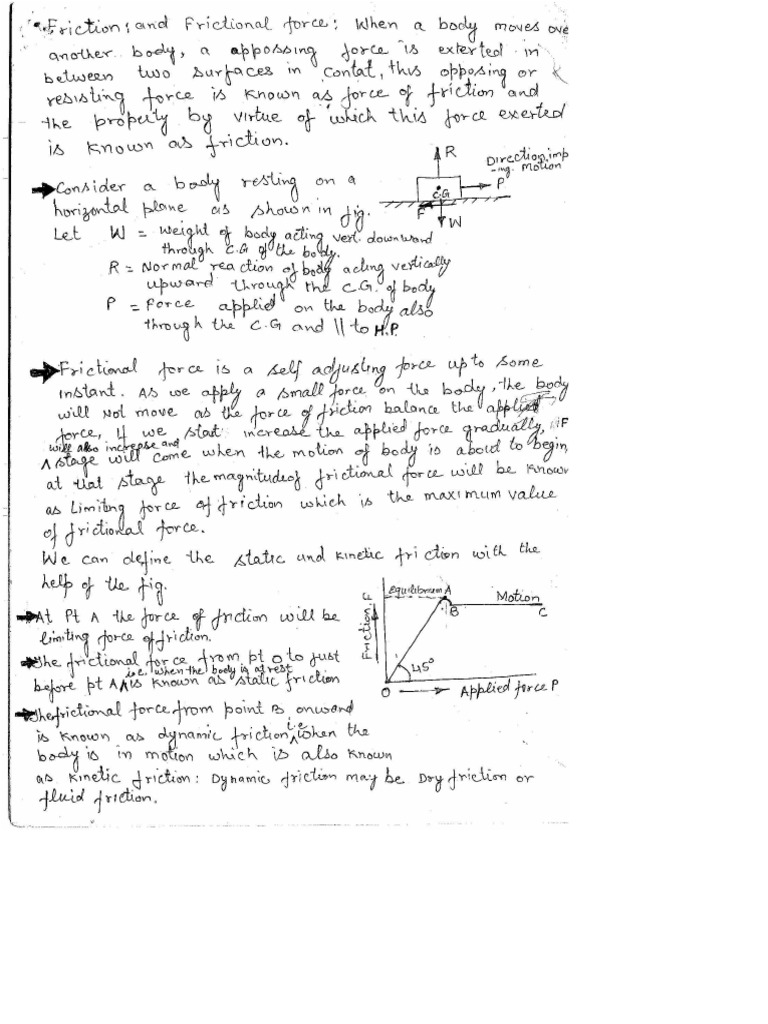 Friction: and Frictional force: When a body moves ove
another body, a appossing force is exterted in
between two surfaces in contat, this opposing or
resisting force is known as force of friction and
the property by virtue of which this force exerted
is known as friction.
Consider a body resting on a
horizontal plane as shown in fig.
Let W = Weight of body acting vert. downward
through C.G of the body.
R = Normal reaction of body acting vertically
upward through the C.G. of body
P = Force applied on the body also
through the C.G and || to H.P.
R
Direction imp
-ing. Motion
P
C.G
F
W
Frictional force is a self adjusting force up to some
instant. As we apply a small force on the body, the body
will not move as the force of friction balance the applied
force, If we start increase the applied force gradually, F
will also increase and
stage will come when the motion of body is about to begin,
at that stage the magnitude of frictional force will be known
as Limiting force of friction which is the maximum value
of frictional force.
We can define the static and kinetic friction with the
help of the fig.
At Pt A the force of friction will be
limiting force of friction.
The frictional force from pt O to just
i.e. when the body is at rest
before pt A is known as static friction
The frictional force from point B onward
is known as dynamic friction i.e when the
body is in motion which is also known
as kinetic friction: Dynamic friction may be Dry friction or
fluid friction.
Equilibrium A
Motion
B
C
Friction F
45°
O
Applied force P